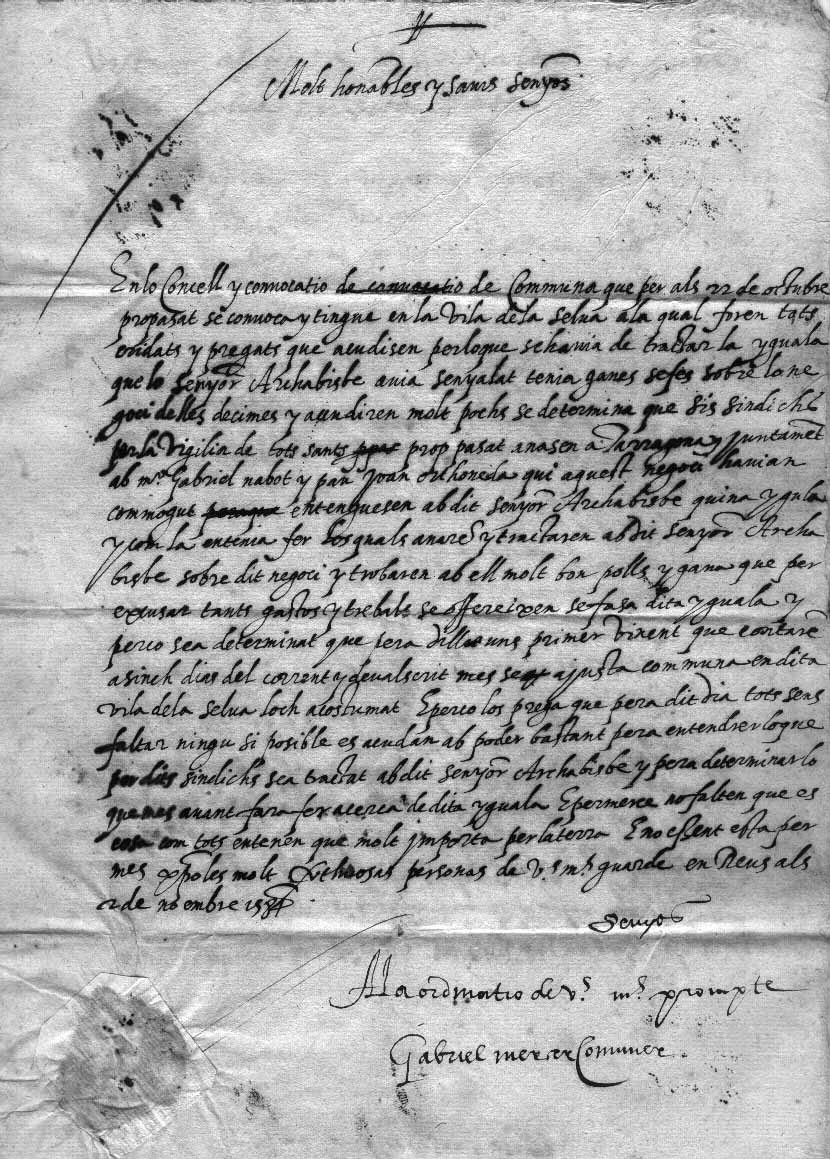 Molt honables y savis senyos
En lo Concell y convocatio de convocatio de Communa que per als 22 de octubre
propasat se convoca y tingue en la vila de la selva a la qual foren tots
cridats y pregats que acudisen per lo que se havia de tractar la yguala
que lo senyor Archabisbe avia senyalat tenia ganes se fes sobre lo ne
goci de les decimes y acudiren molt pochs se determina que sis sindichs
per la vigilia de tots sants prop pasat anasen a Tarragona y juntament
ab mº Gabriel nabot y pau Joan qui aquest negoci havian
commogut peraque entenguesen ab dit senyor Archabisbe quina yguala
y com la entenia fer los quals anaren y tractaren ab dit senyor Archa
bisbe sobre dit negoci y trobaren ab ell molt bon polls y gana que per
excusar tants gastos y trebals se offereixen se fasa dita yguala y
perco sea determinat que pera dilluns primer vinent que contarem
a sinch dias del corrent y devalscrit mes se ajusta communa en dita
vila de la selva loch acostumat E perco los prega que pera dit dia tots sens
faltar ningu si posible es acudan ab poder bastant pera entendrer lo que
per dits sindichs sea tractat ab dit senyor Archabisbe y pera determinar lo
que mes avant fara fer acerca de dita yguala E per merce no falten que es
cosa com tots entenen que molt importa per la terra E no essent esta per
mes molt personas de v.s m.s guarde en Reus als
2 de noembre
senyos
A la ordinatio de v.s m.s prompte
Gabriel mercer Comuner